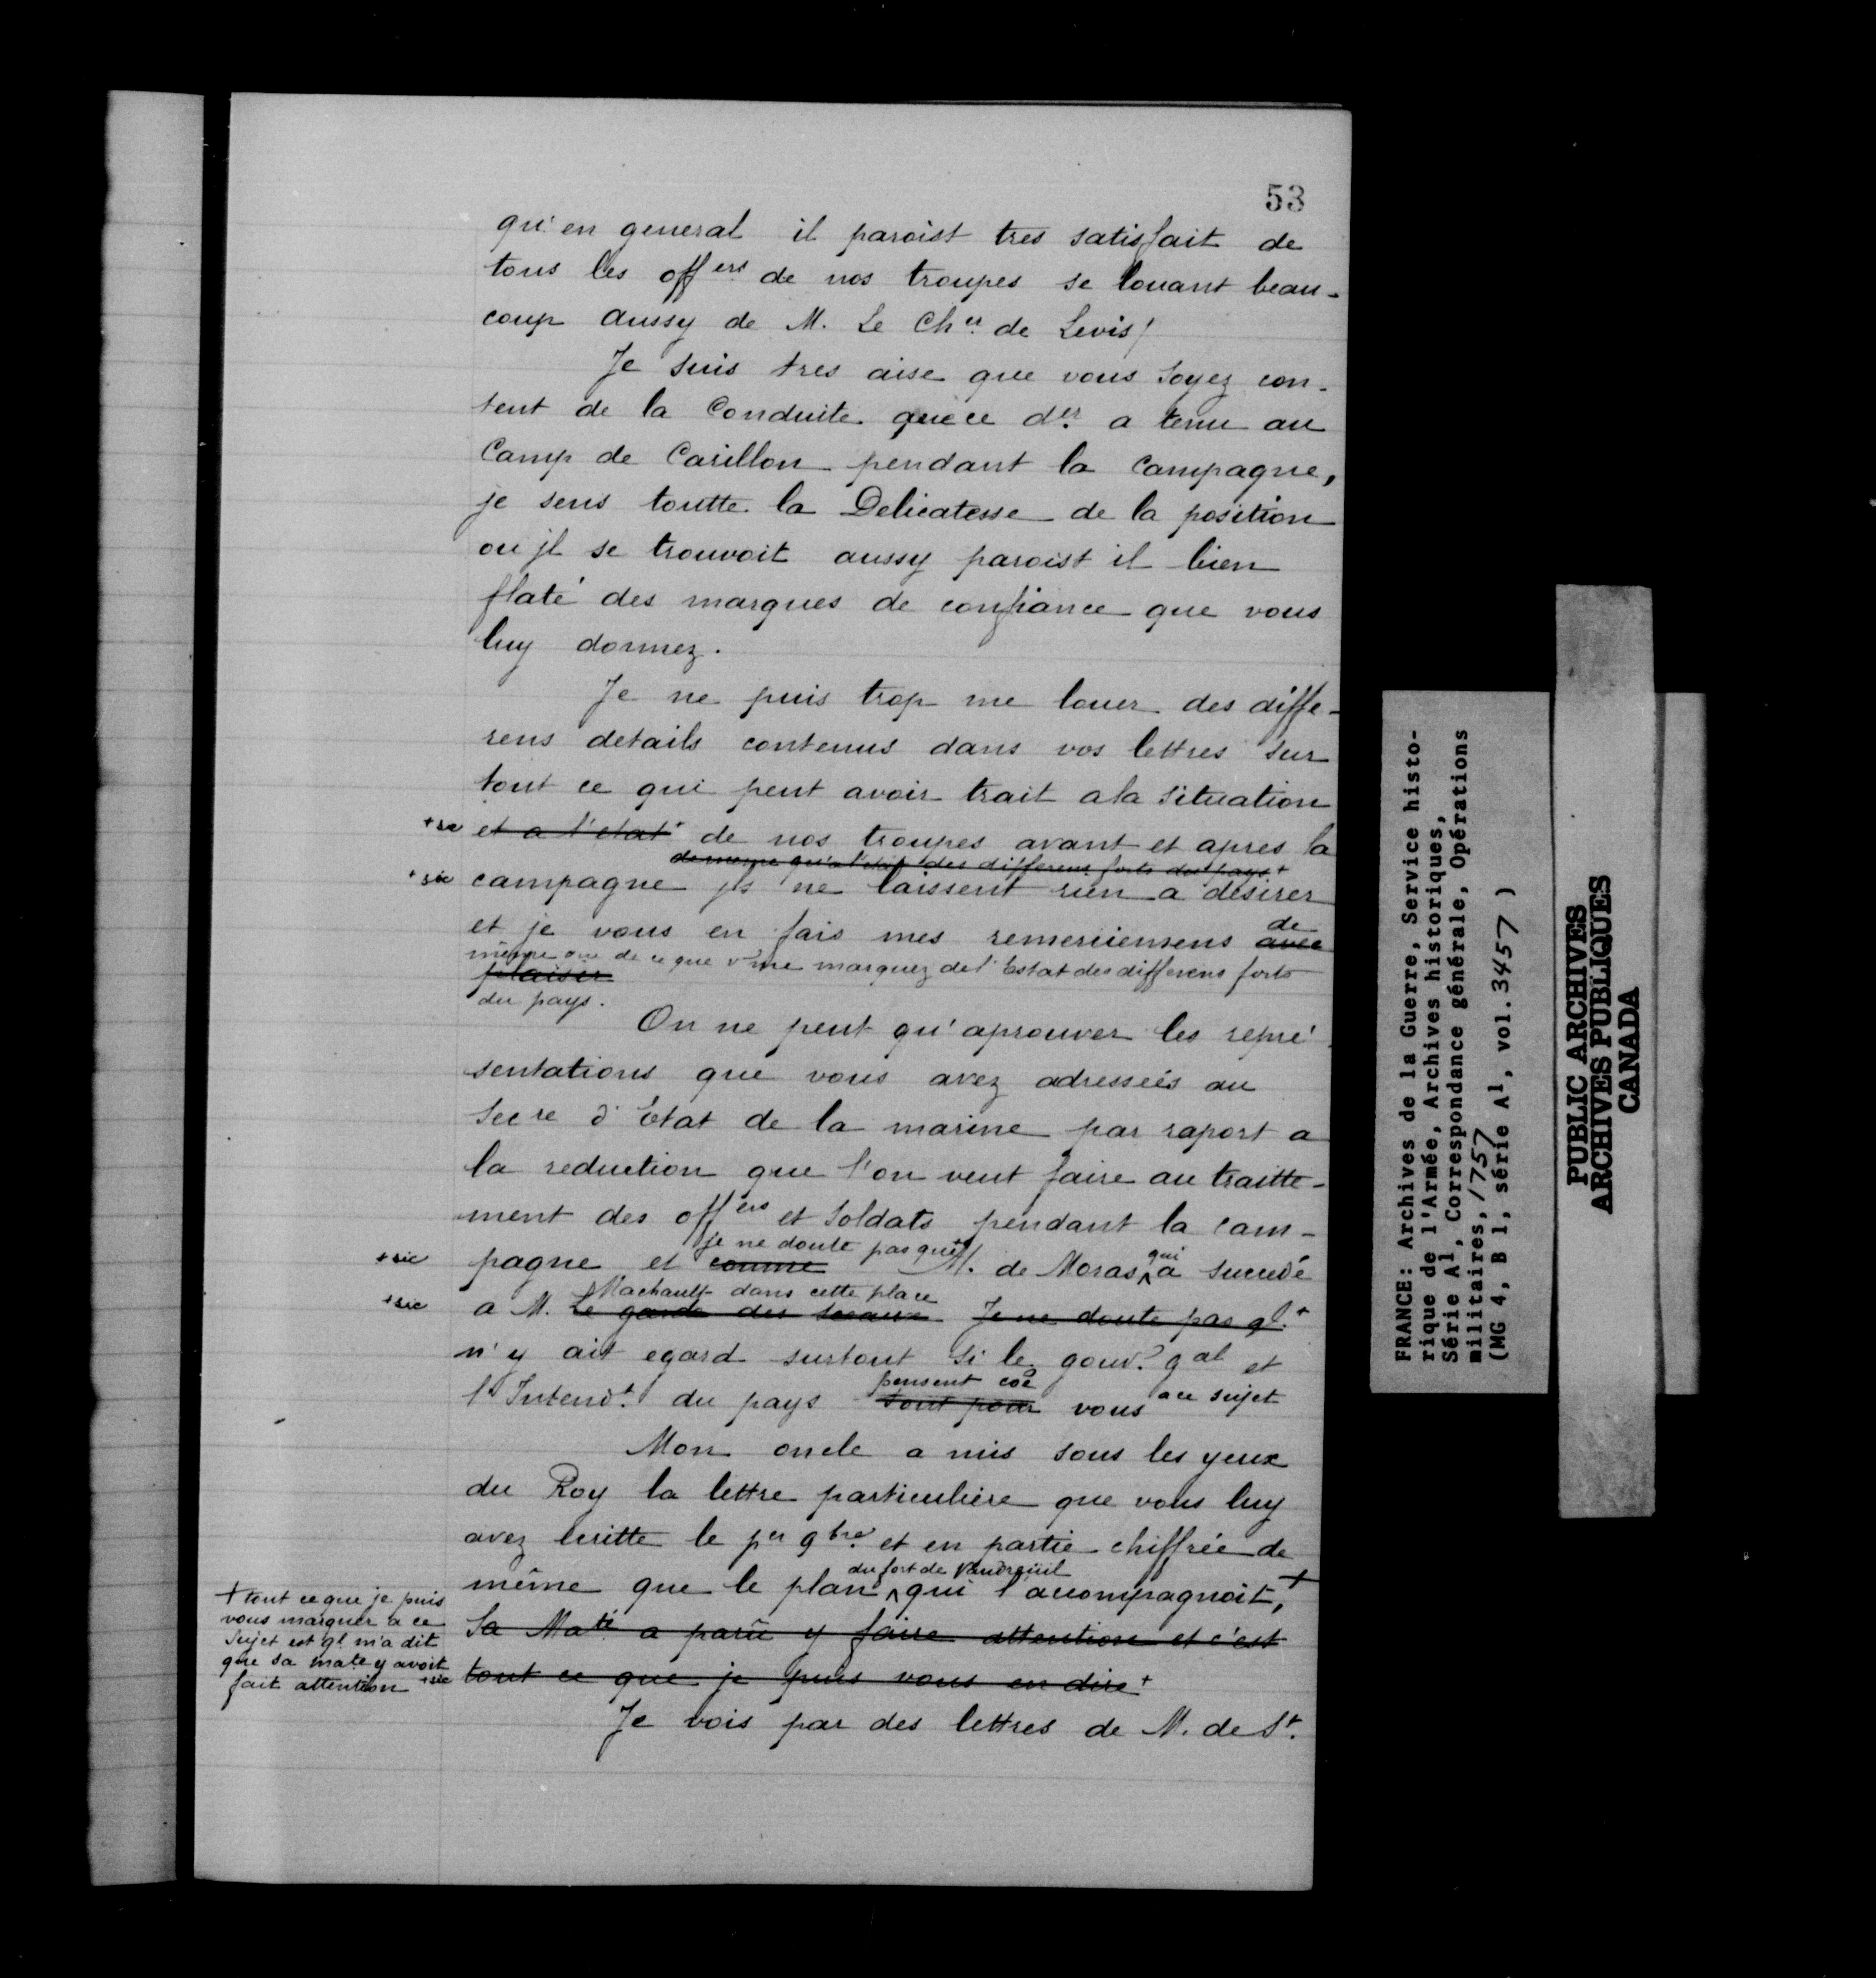 53
qu'en general il paroist tres satisfait de
tous les offers de nos troupes se louant beau-
coup aussy de M. Le Cher de Levis/
Je suis tres aise que vous soyez con-
tent de la Conduite que ce der a tenu au
Camp de Carillon pendant la Campagne,
je sens toutte la Delicatesse de la position
ou jl se trouvoit aussy paroist il bien
flaté des marques de confiance que vous
luy donnez.
Je ne puis trop me louer des diffe-
rens details contenus dans vos lettres sur
tout ce qui peut avoir trait a la situation
+sic et a l'etat+ de nos troupes avant et apres la
de meme qu'a l'etat des differens forts des pays+
+sic campagne jls ne laissent rien a desirer
et je vous en fais mes remerciemens avec de
même que de ce que v. me marquez de l'Estat des differens forts
plaisir
du pays.
On ne peut qu'aprouver les repré-
sentations que vous avez adressées au
Secre d'Etat de la marine par raport a
la reduction que l'on veut faire au traitte-
ment des offers et Soldats pendant la cam-
je ne doute pas que+ qui
+sic pagne et comme M. de Moras a succedé
Machault dans cette place
+sic a M. Le garde des sceaux Je ne doute pas ql.+
n'y ait egard surtout si le gouvr. gal et
pensent coe
l'Intendt. du pays sont pour vous a ce sujet
Mon oncle a mis sous les yeux
du Roy la lettre particuliere que vous luy
avez Ecritte le per 9bre. et en partie chiffrée de
du fort de Vaudreüil
même que le plan qui l'accompagnoit, +
Sa Maté a parû y faire attention et c'est
tout ce que je puis vous en dire+
+ tout ce que je puis
vous marquer a ce
Sujet est ql. m'a dit
que sa maté y avoit
fait attention +sic
Je vois par des lettres de M. de St.
FRANCE: Archives de la Guerre, Service histo-
rique de l'Armée, Archives historiques,
Série A1, Correspondance générale, Opérations
militaires, 1757
(MG 4, B 1, série A1, vol. 3457 )
PUBLIC ARCHIVES
ARCHIVES PUBLIQUES
CANADA